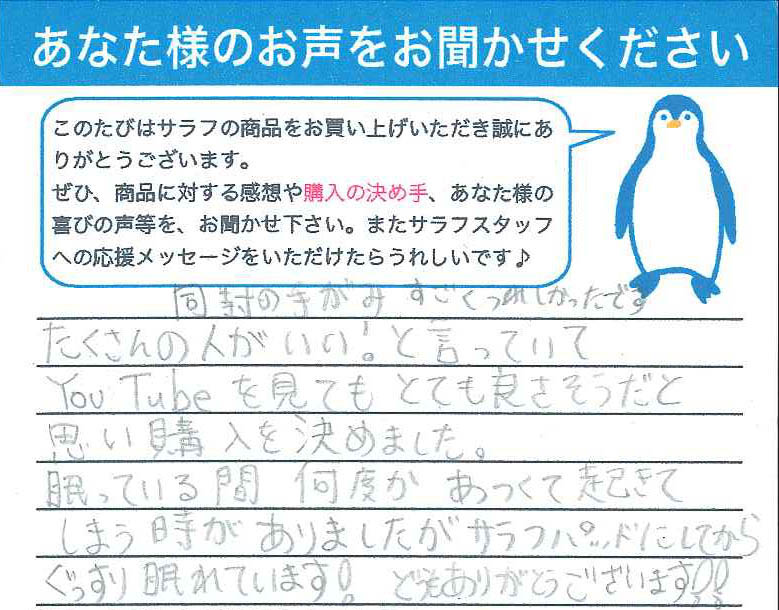 あなた様のお声をお聞かせください
このたびはサラフの商品をお買い上げいただき誠にあ
りがとうございます。
ぜひ、商品に対する感想や購入の決め手、あなた様の
喜びの声等を、お聞かせ下さい。またサラフスタッフ
への応援メッセージをいただけたらうれしいです♪
同封の手がみ すごくうれしかったです
たくさんの人がいい!と言っていて
You Tubeを見てもとても良さそうだと
思い購入を決めました。
眠っている間 何度か あつくて起きて
しまう時がありましたがサラフパッドにしてから
ぐっすり眠れています! どうもありがとうございます!!